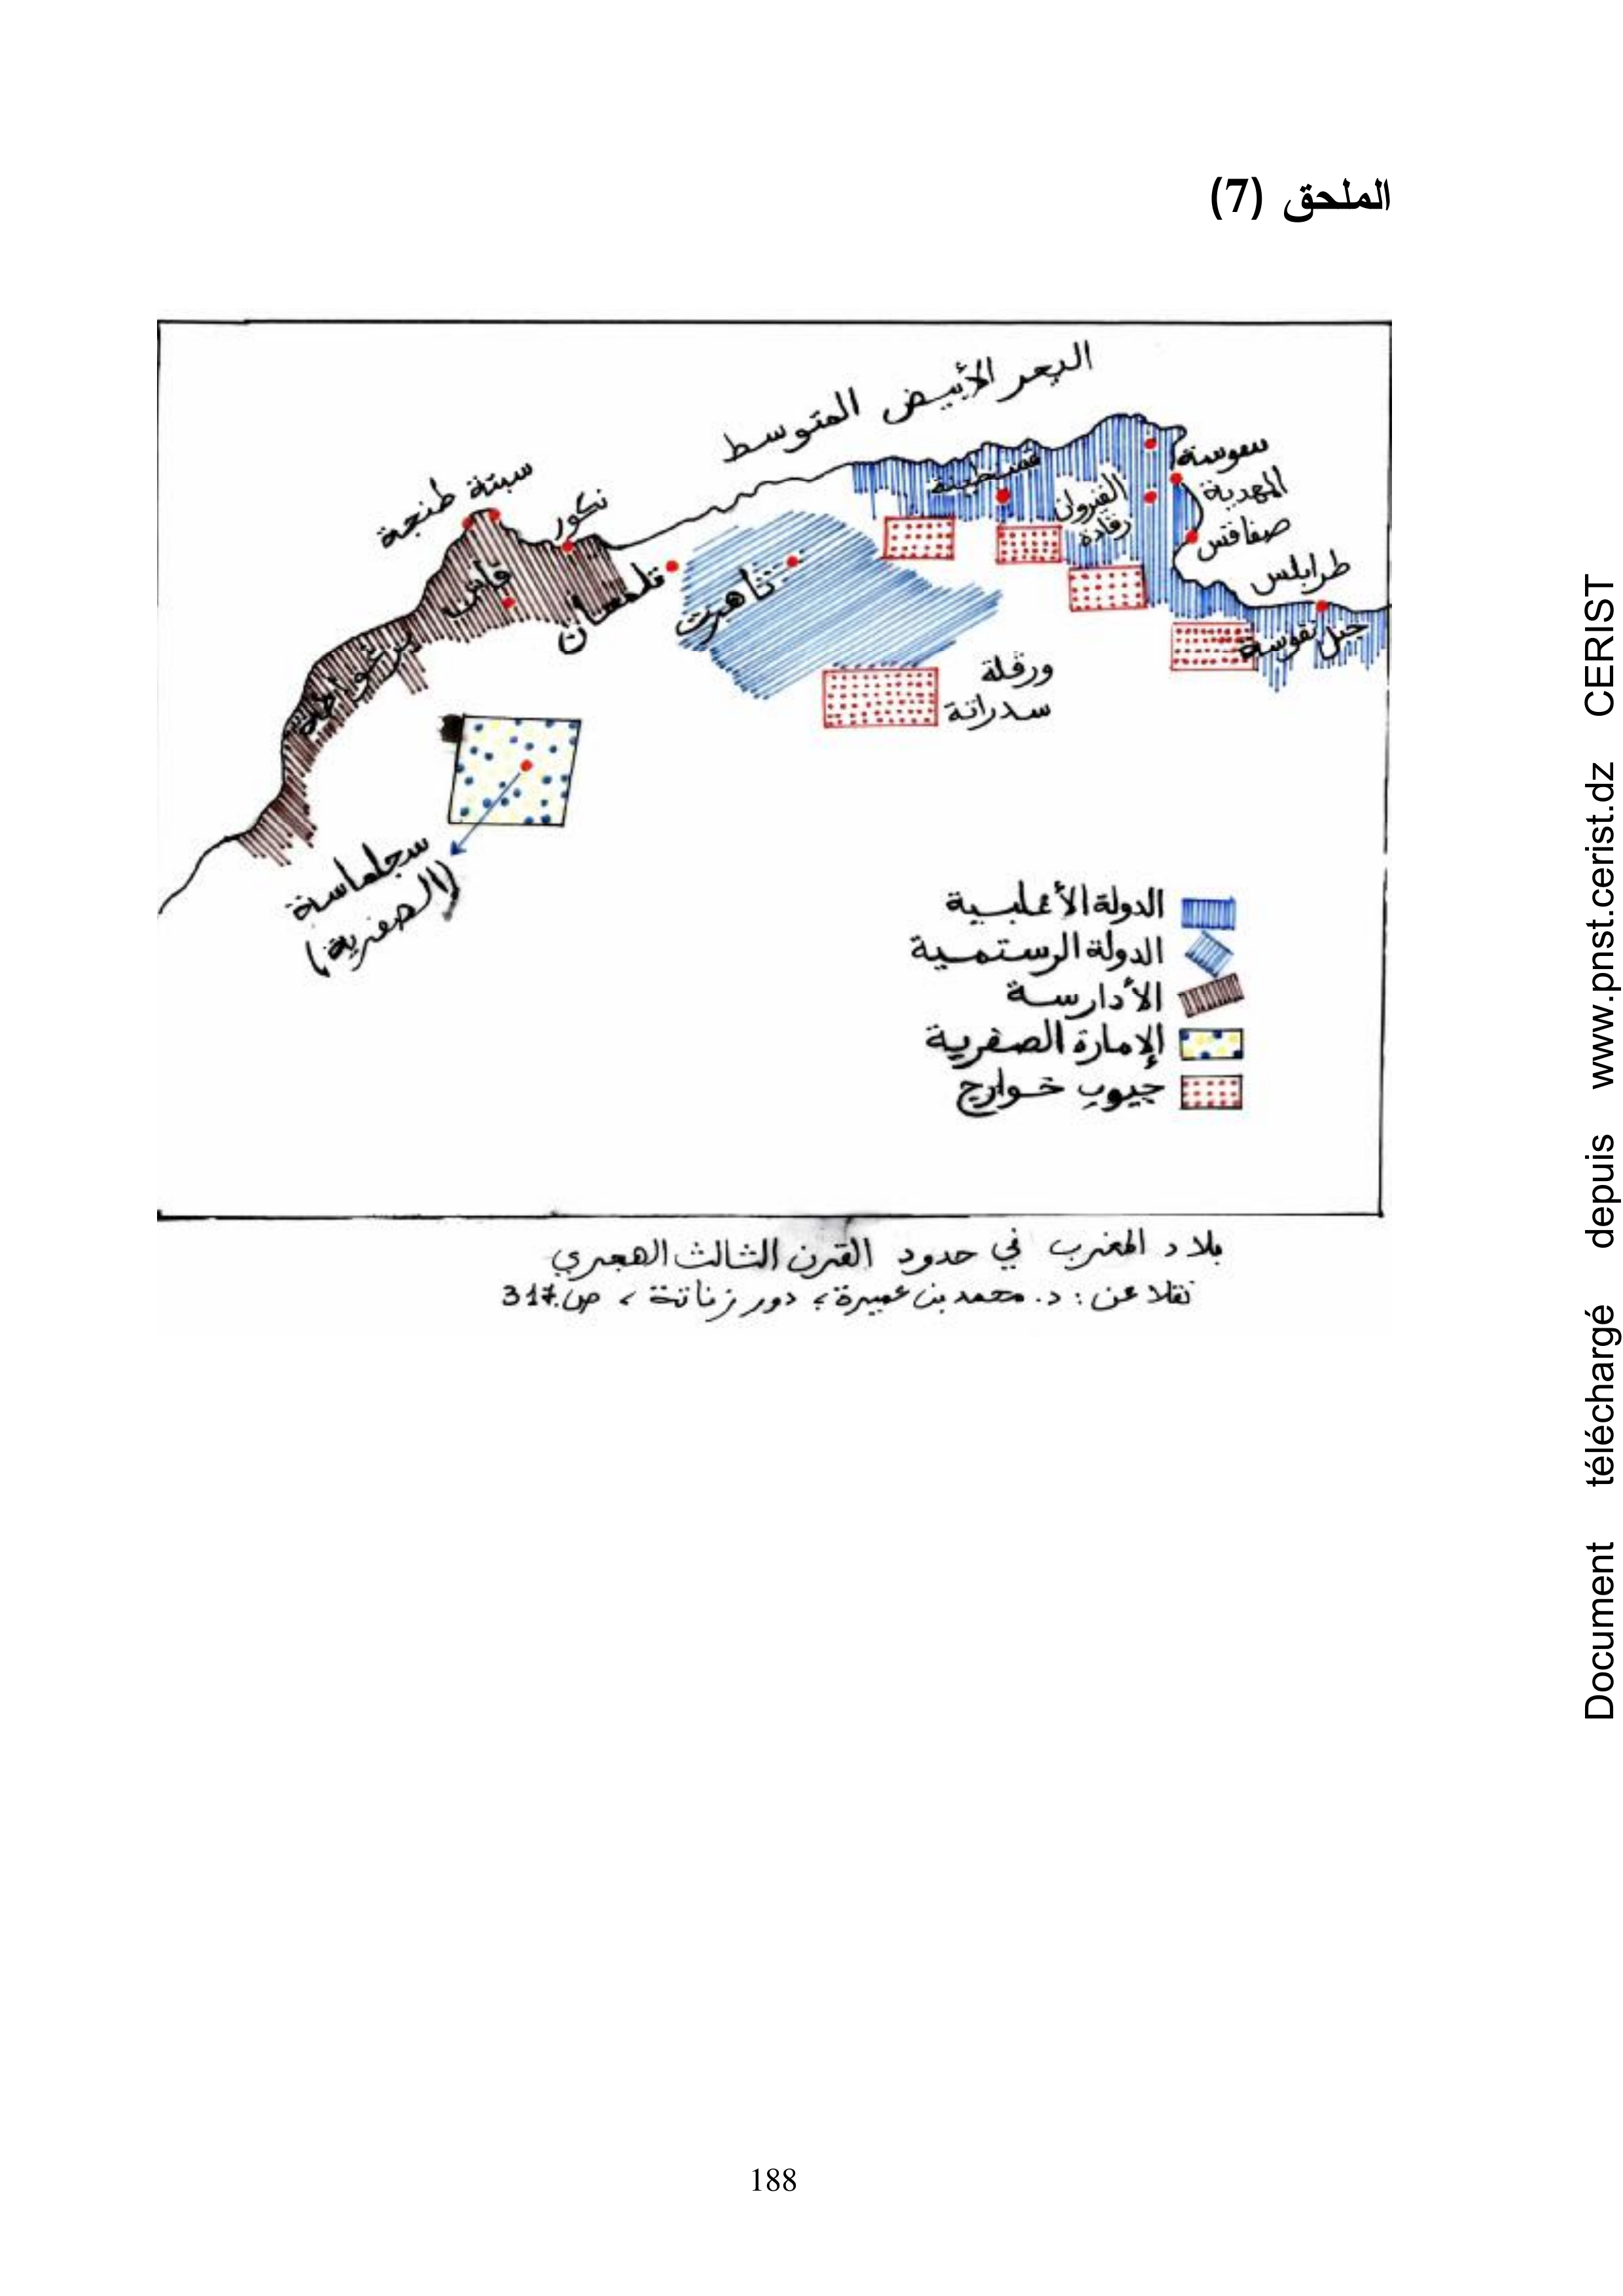 الملحق (7)
البحر الأبيض المتوسط
سبتة طنجة
نكور
فاس
تلمسان
تاهرت
قسنطينة
القيروان
رقادة
سوسة
المهدية
صفاقس
طرابلس
جبل نفوسة
ورقلة
سدراتة
سجلماسة
(الصفرية)
الدولة الأغلبية
الدولة الرستمية
الأدارسة
الإمارة الصفرية
جيوب خوارج
بلاد المغرب في حدود القرن الثالث الهجري
نقلا عن : د. محمد بن عميرة، دور زناتة ، ص.317
188
Document téléchargé depuis www.pnst.cerist.dz CERIST